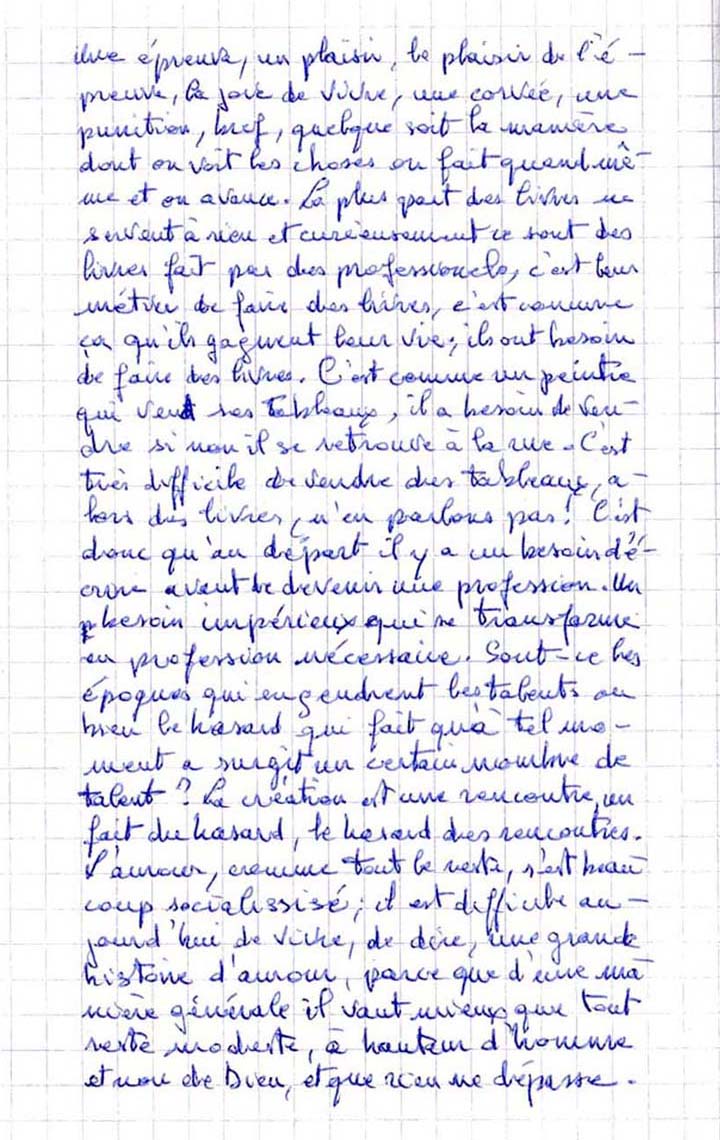 une épreuve, un plaisir, le plaisir de l'é-
preuve, la joie de vivre, une corvée, une
punition, bref, quelque soit la manière
dont on voit les choses on fait quand mê-
me et on avance. La plus part des livres ne
servent à rien et curieusement ce sont des
livres fait par des professionels, c'est leur
métier de faire des livres, c'est comme
ça qu'ils gagnent leur vie, ils ont besoin
de faire des livres. C'est comme un peintre
qui vend ses tableaux, il a besoin de ven-
dre si non il se retrouve à la rue. C'est
très difficile de vendre des tableaux, a-
lors des livres, n'en parlons pas! C'est
donc qu'au départ il y a un besoin d'é-
crire avant de devenir une profession. Un
besoin impérieux qui se transforme
en profession nécessaire. Sont-ce les
époques qui engendrent les talents ou
bien le hasard qui fait qu'à tel mo-
ment a surgit un certain nombre de
talent ? La création est une rencontre, un
fait du hasard, le hasard des rencontres.
L'amour, comme tout le reste, s'est beau
coup socialissisé ; il est difficile au-
jourd'hui de vivre, de dire, une grande
histoire d'amour, parce que d'une ma
nière générale il vaut mieux que tout
reste modeste, à hauteur d'homme
et non de Dieu, et que rien ne dépasse.